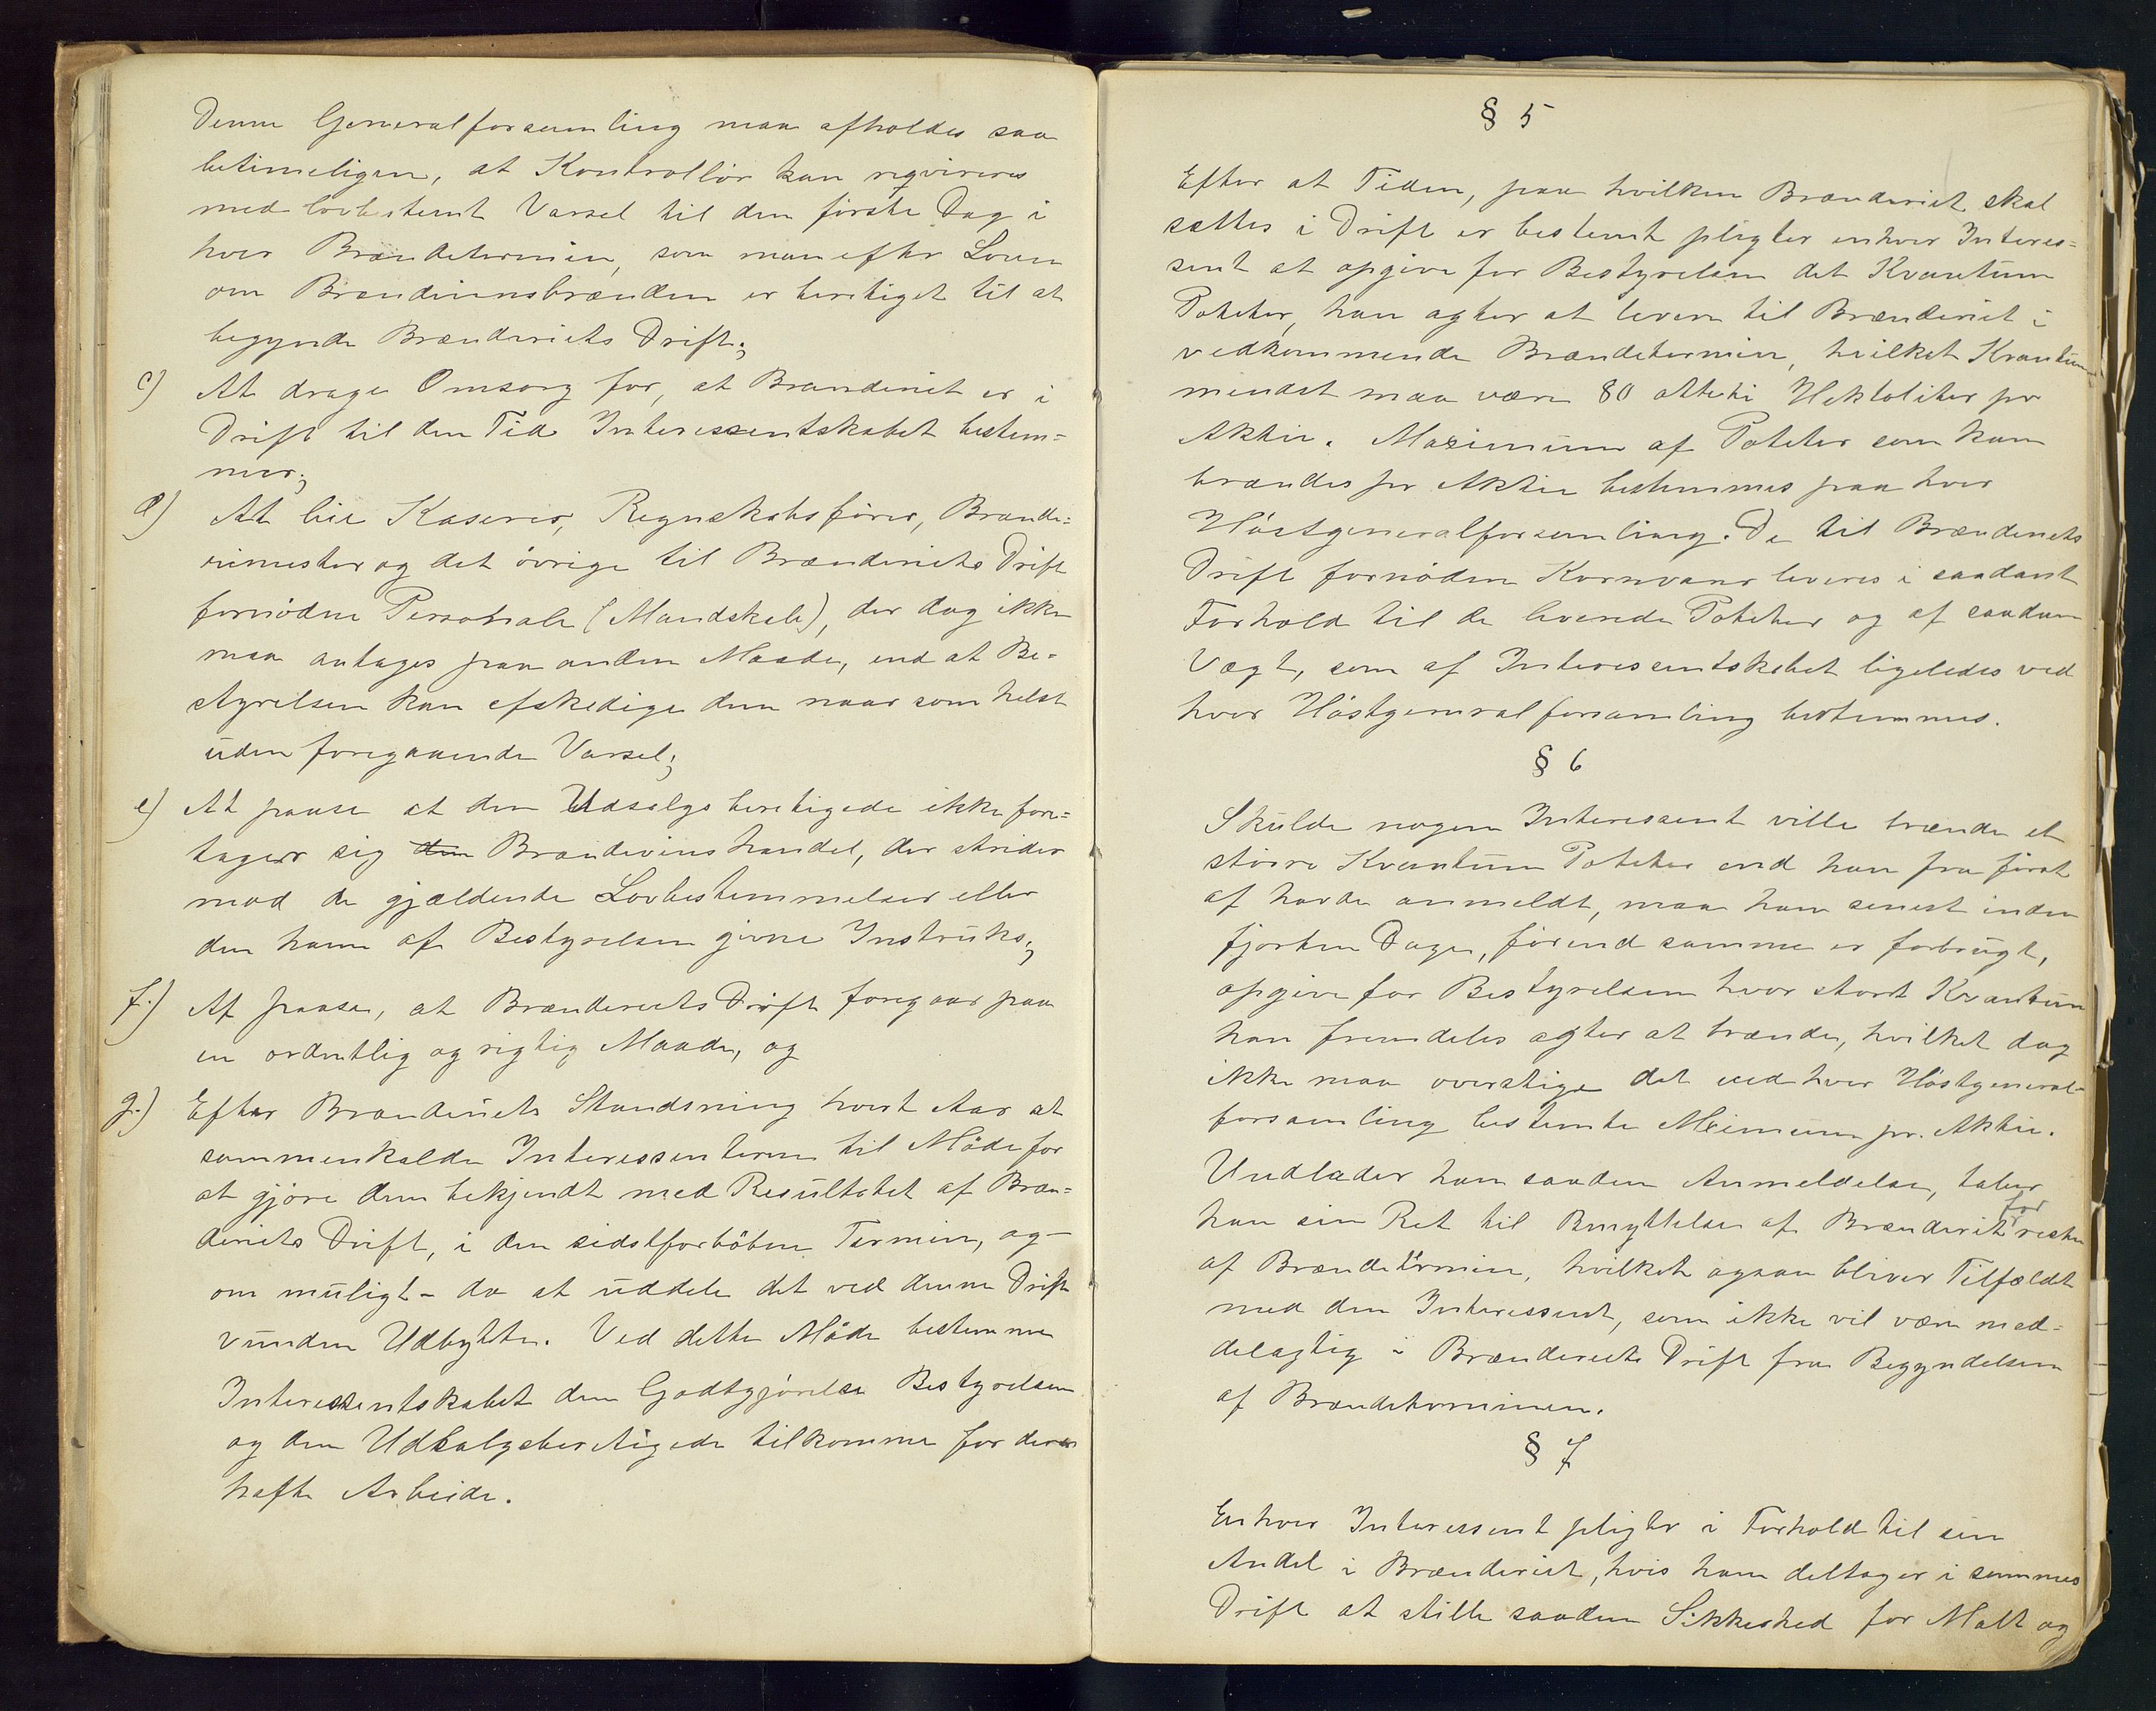 Denne Generalforsamling maa afholdes saa
betimeligen, at Kontrollör kan reqvireres
med lovbestemt Varsel til den förste Dag i
hver Brændetermin, som man efter Loven
om Brændevinsbrænden er beretiget til at
begynde Brænderiets Drift;
c) At drage Omsorg for, at Brænderiet er i
Drift til den Tid Interessentskabet bestem=
mer;
d) At leie Kaserer, Regnskabsförer, Brænde=
rimester og det övrige til Brænderiets Drift
fornödne Personale (Mandskab), der dog ikke
maa antages paa anden Maade, end at Be=
styrelsen kan afskedige dem naar som helst
uden foregaaende Varsel;
e) At paase at den Udsalgsberetigede ikke fore=
tager sig den Brændevinshandel, der strider
mod de gjældende Lovbestemmelser eller
den ham af Bestyrelsen givne Instruks;
f.) At paase, at Brænderiets Drift foregaar paa
en ordentlig og rigtig Maade, og
g.) Efter Brænderiets Standsning hvert Aar at
sammenkalde Interessenterne til Möde for
at gjöre dem bekjendt med Resultatet af Bræn=
deriets Drift, i den sidstforlöbne Termin, og -
om muligt - da at uddele det ved denne Drift
vundne Udbytte. Ved dette Möde bestemme
Interessentskabet den Godtgjörelse Bestyrelsen
og den Udsalgsberetigede tilkomme for deres
hafte Arbeide.
§ 5
Efter at Tiden, paa hvilken Brænderiet skal
sættes i Drift er bestemt pligter enhver Interes=
sent at opgive for Bestyrelsen det Kvantum
Poteter, han agter at levere til Brænderiet i
vedkommende Brændetermin, hvilket Kvantum
mindst maa være 80 otteti Hektoliter pr
Aktie. Maximum af Poteter som kan
brændes pr Aktie bestemmes paa hver
Höstgeneralforsamling. De til Brænderiets
Drift fornödne Kornvarer leveres i saadant
Forhold til de leverede Poteter og af saadan
Vægt, som af Interessentskabet ligeledes ved
hver Höstgeneralforsamling bestemmes.
§ 6
Skulde nogen Interessent ville brænde et
större Kvantum Poteter end han fra först
af havde anmeldt, maa han senest inden
fjorten Dage, förend samme er forbrugt,
opgive for Bestyrelsen hvor stort Kvantum
han fremdeles agter at brænde, hvilket dog
ikke maa overstige det ved hver Höstgeneral-
forsamling bestemte pr. Aktie.
Undlader han saaden Anmeldelse, taber
han sin Ret til Benyttelse af Brænderiet for resten
af Brændetermin, hvilket ogsaa bliver Tilfældt
med den Interessent, som ikke vil være med=
delagtig i Brænderiets Drift fra Begyndelsen
af Brændeterminen.
§ 7
Enhver Interessent pligter i Forhold til sin
Andel i Brænderiet, hvis han deltager i sammes
Drift at stille saaden Sikkerhed for Malt og